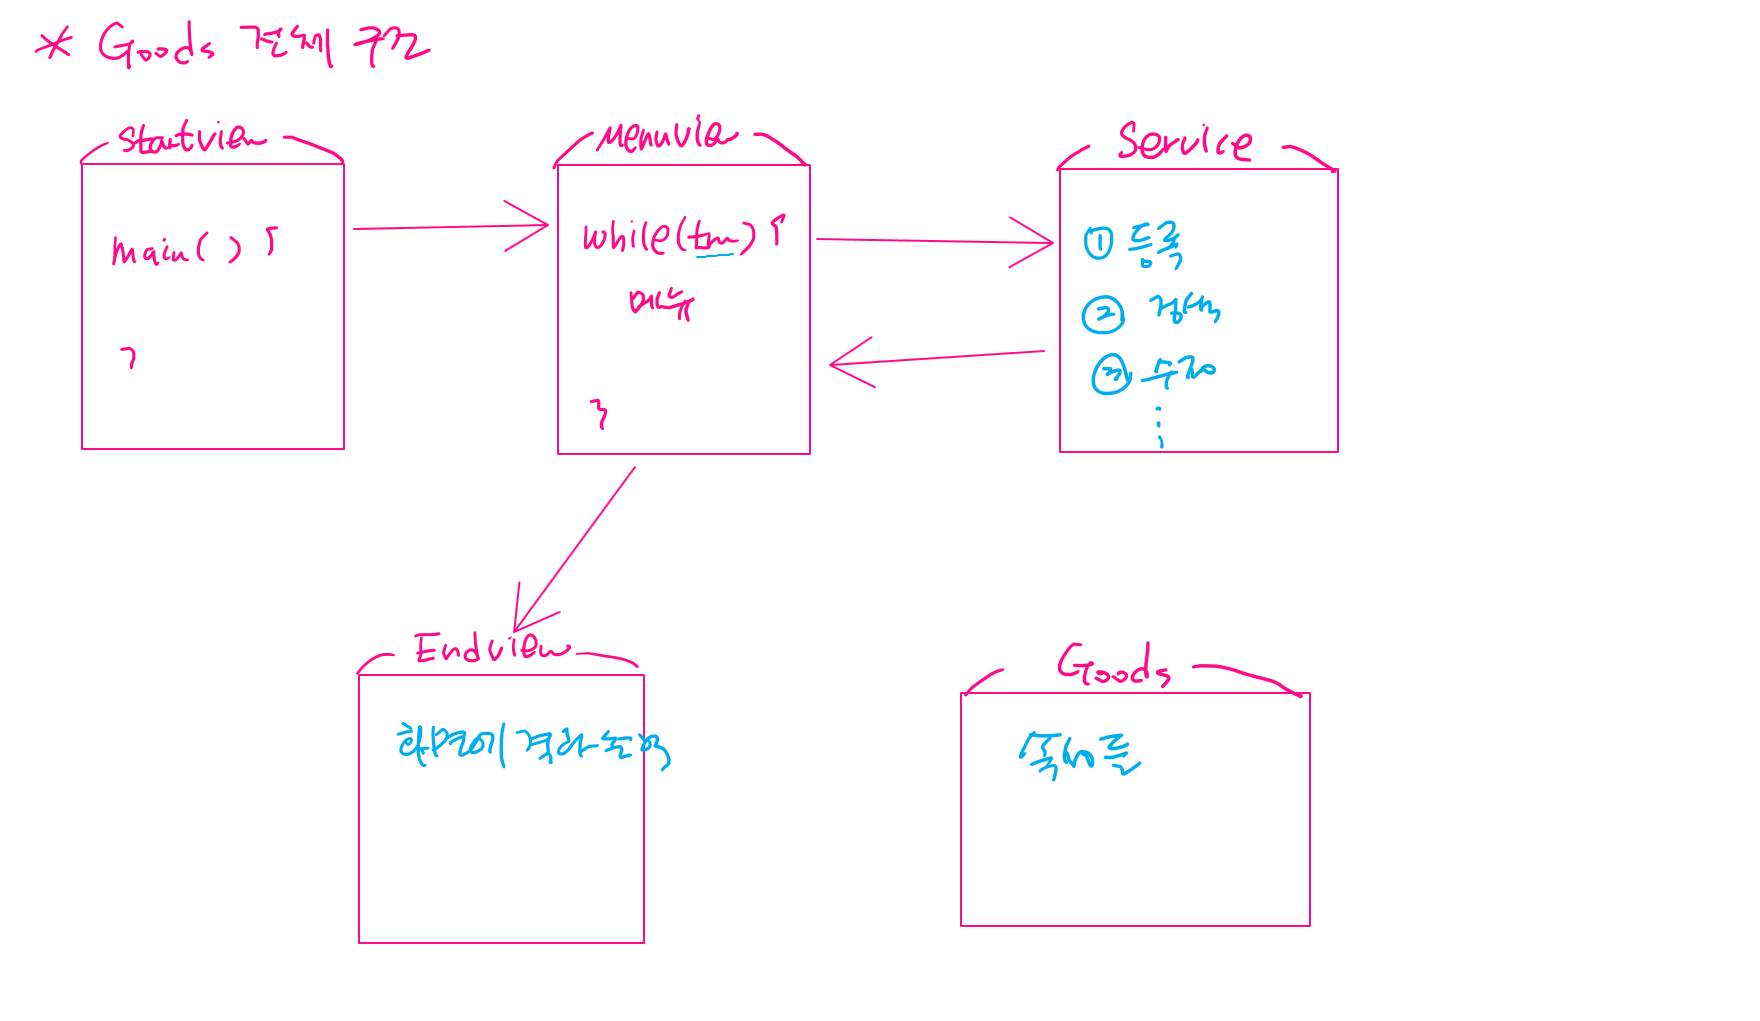 * Goods 전체 구조
Startview
main() {
}
Menuview
while(true) {
메뉴
}
Service
① 등록
② 검색
③ 수정
⋮
Endview
화면에 결과출력
Goods
속성들